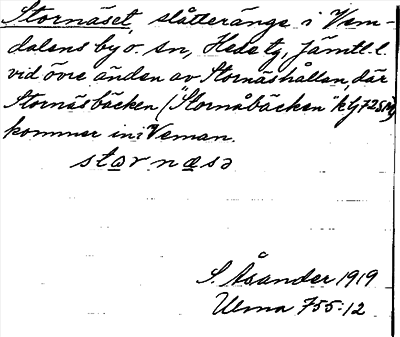 Stornäset, slåtteränge i Vem-
dalens by o. sn, Hede tg, Jämtl. l.
vid övre änden av Stornäshållan, där
Stornäsbäcken ("Stornåbäcken" ktj 725
kommer in i Veman.
stornæsə
S. Åsander 1919
Ulma 755:12